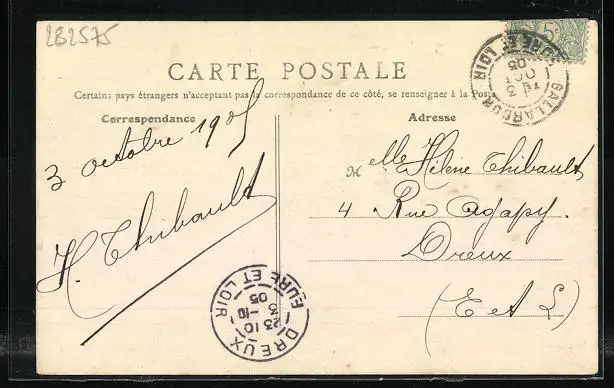 282575
CARTE POSTALE
Certains pays étrangers n'acceptant pas la correspondance de ce côté, se renseigner à la Poste
Correspondance
Adresse
3 octobre 1905
H. Thibault
Melle Hélène Thibault
4 Rue Agapy.
Dreux
(E et L)
5c
GALLARDON
EURE ET LOIR
3
OCT
05
DREUX
EURE ET LOIR
23 10
3 -10
05